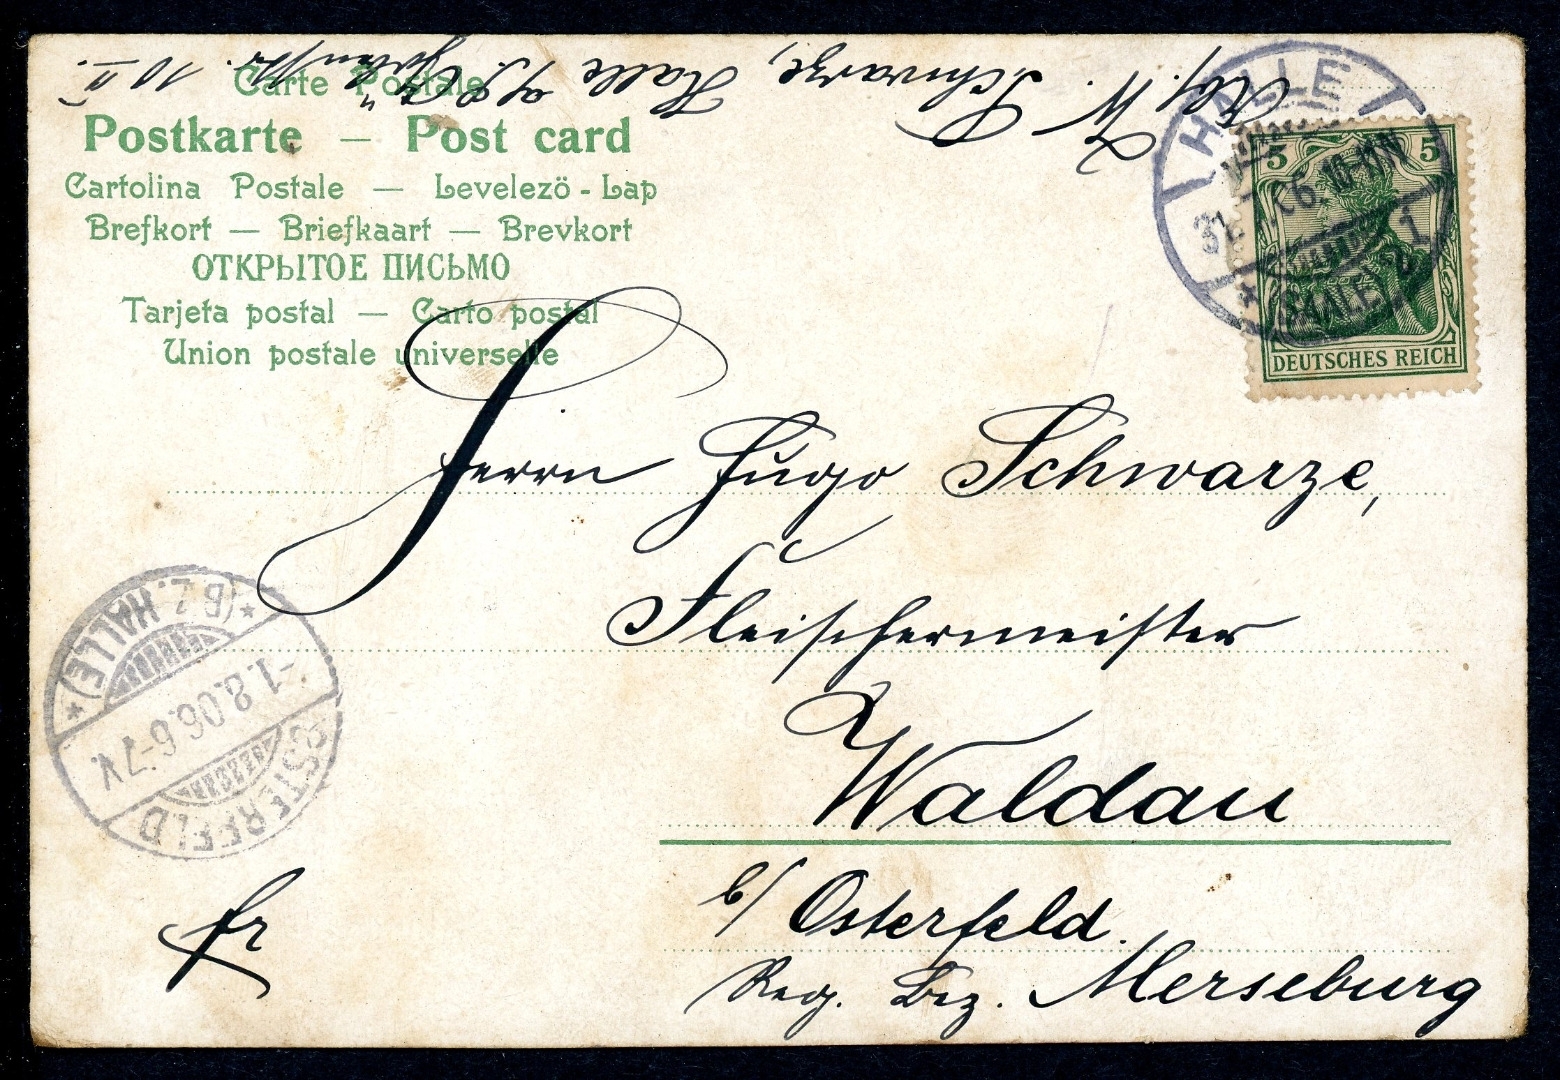 Carte Postale
Postkarte — Post card
Cartolina Postale — Levelezö - Lap
Brefkort — Briefkaart — Brevkort
ОТКРЫТОЕ ПИСЬМО
Tarjeta postal — Carto postal
Union postale universelle
Abs. W. Schwarze, Halle a/S. 10 II.
HALLE
31. 7. 06. 10-11 N
1
* (SAALE) *
5 5
DEUTSCHES REICH
Herrn Hugo Schwarze,
Fleischermeister
Waldau
b/ Osterfeld.
Reg. Bez. Merseburg
fr
OSTERFELD
-1.8.06.6-7V.
* (BZ. HALLE) *